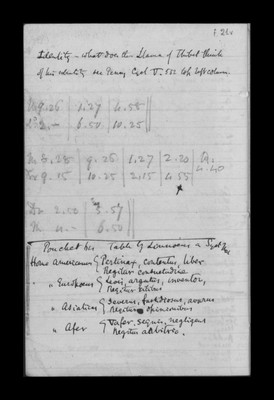 Identity – what does the Llama of Thibet think
of his identity see Penny Cycl V. 552 top left column.
9.26 | 1.27 | 4.55
6.50 | 10.25
M 8.28 | 9.26 | 1.27 | 2.20
9.15 | 10.25 | 2.15 | 4.55 4.40
x
2.50 3.57
6.50
Pouchet has Table of Linnaeus in Syst Nat
Homo Americanus { Pertinax, contentus, liber
Regitur consuetudine
" Europaeus { Levis, argutus, inventor,
Regitur ritibus
" Asiaticus { Severus, fastuosus, avarus
Regitur opinionibus
" Afer { Vafer, segnis, negligens
Regitur arbitrio.